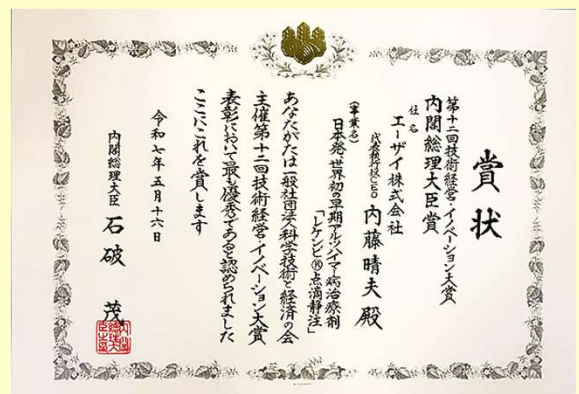 賞状
第十二回技術経営・イノベーション大賞
内閣総理大臣賞
社名
エーザイ株式会社
代表執行役CEO 内藤晴夫 殿
(事業名)
日本発、世界初の早期アルツハイマー病治療剤
「レケンビ®点滴静注」
あなたがたは一般社団法人科学技術と経済の会
主催第十二回技術経営・イノベーション大賞
表彰において最も優秀であると認められました
ここにこれを賞します
令和七年五月十六日
内閣総理大臣 石破 茂